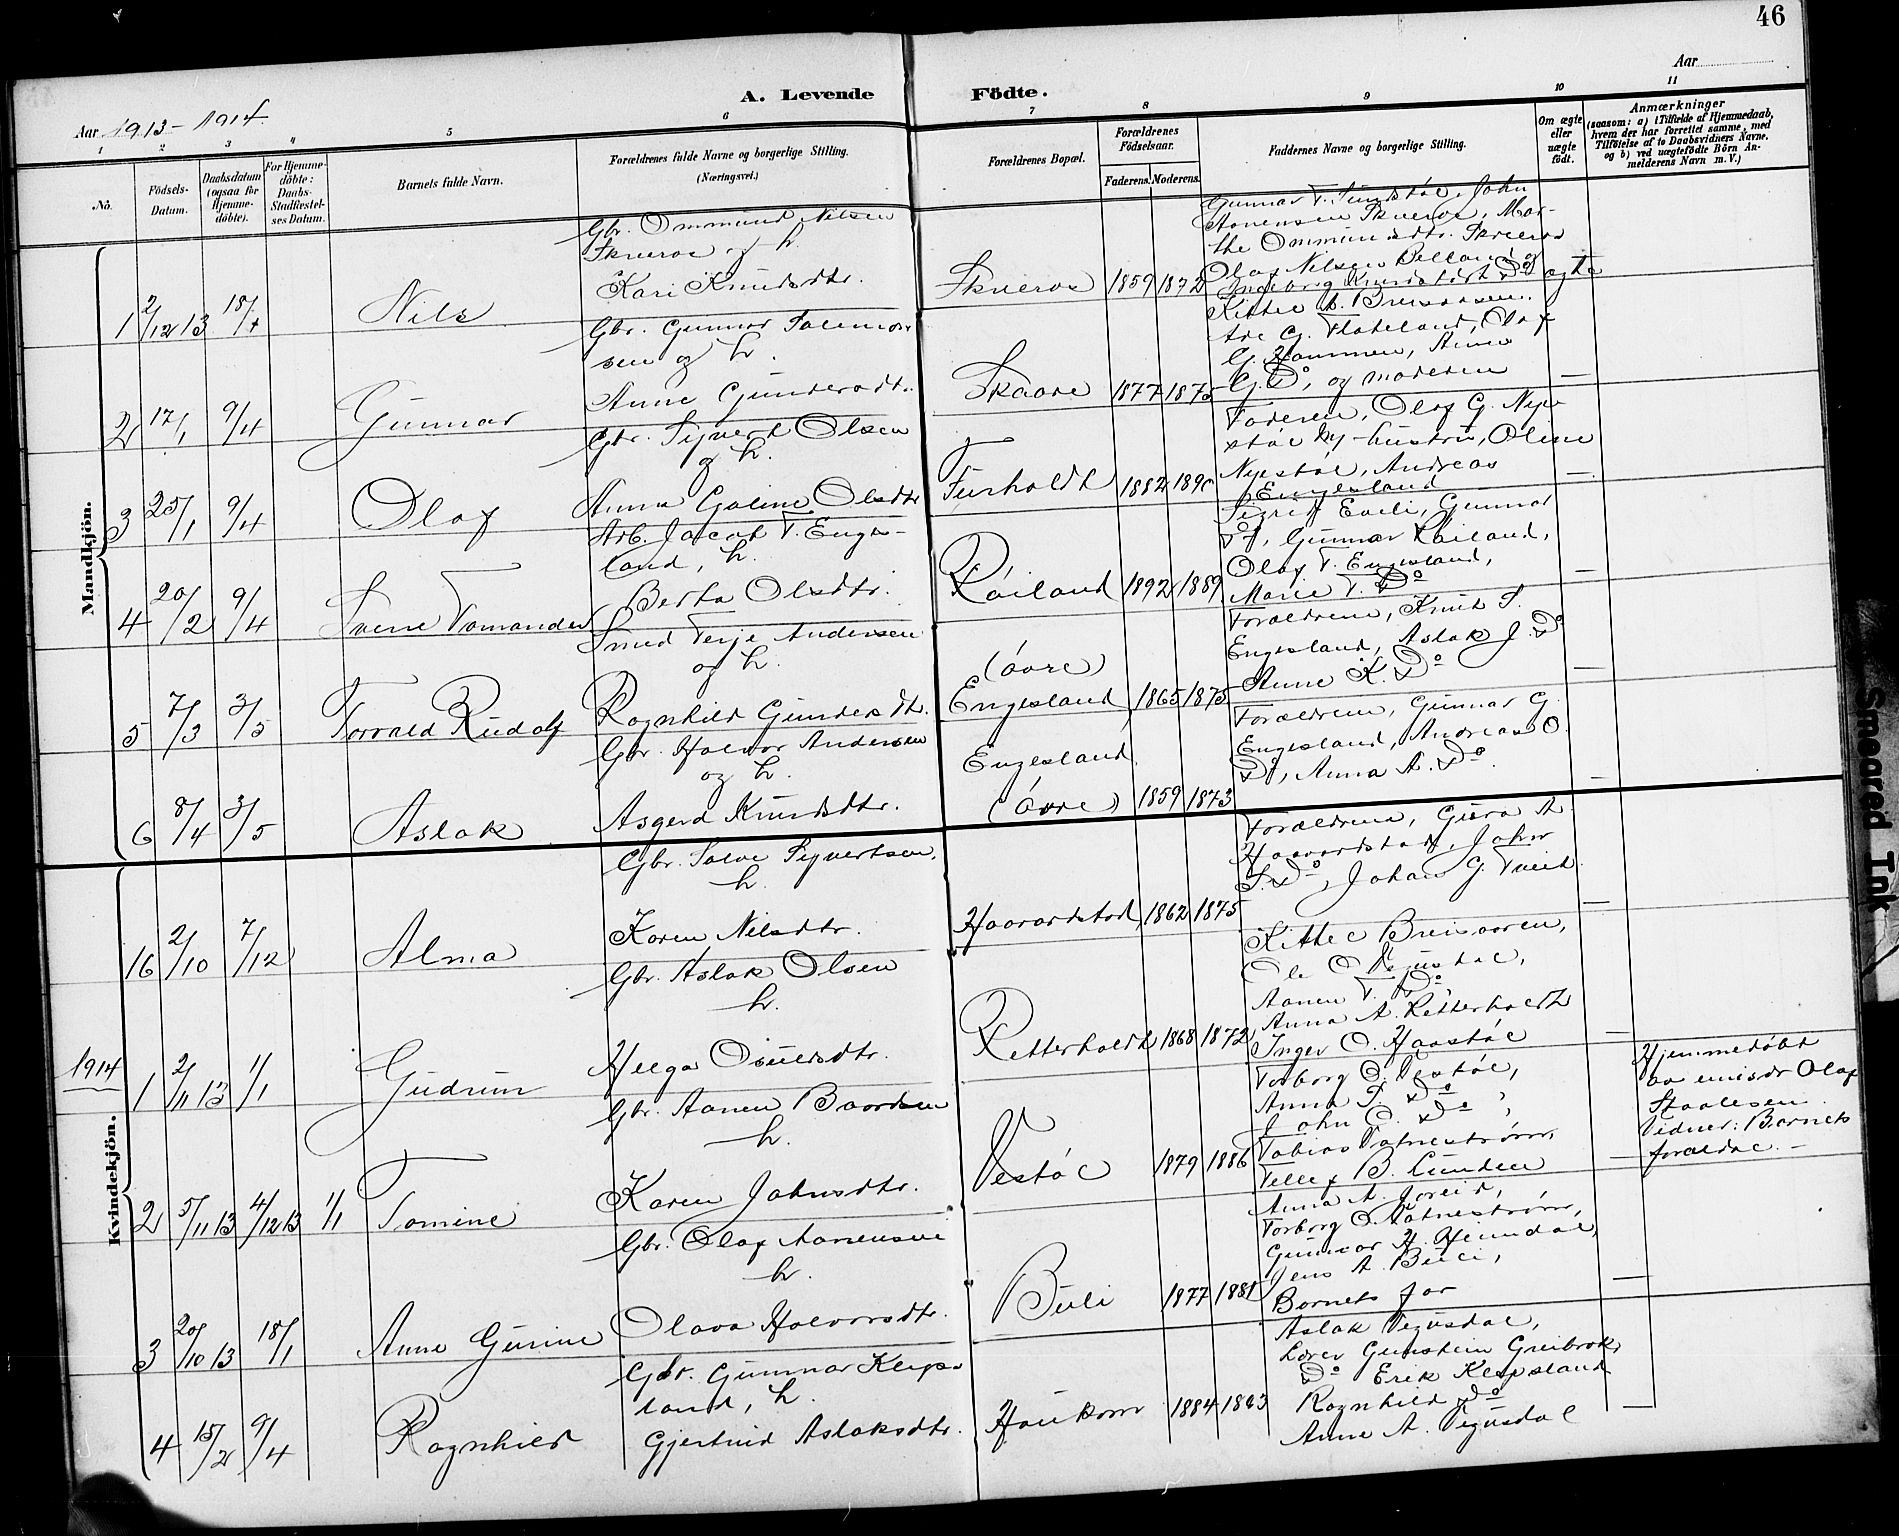 46
Aar
Aar 1913-1914.
A. Levende Födte.
1 2 3 4 5 6 7 8 9 10 11
No.
Födsels-Datum.
Daabsdatum (ogsaa for Hjemme-döbte).
For Hjemme-döbte: Daabs-Stadfestel-ses Datum.
Barnets fulde Navn.
Forældrenes fulde Navne og borgerlige Stilling.
(Næringsvei.)
Forældrenes Bopæl.
Forældrenes Födselsaar.
Faderens. Moderens.
Faddernes Navne og borgerlige Stilling.
Om ægte eller uægte födt.
Anmærkninger
(saasom: a) i Tilfælde af Hjemmedaab,
hvem der har forrettet samme, med
Tilföielse af to Daabsvidners Navne,
og b) ved uægtefödte Börn An-
melderens Navn m. V.)
Mandkjön.
1 2/12 13 18/1 Nils
Gbr. Ommund Nilsen
Skjeros og h.
Kari Knudsdtr.
1859 1872
Gunnar T.
John
Aanensen
Mar-
the Ommundsdtr.
Olaf Nilsen
Ingeborg
ægte
2 17/1 9/4 Gunnar
Gbr. Gunnar Salamon-
sen og h.
Anne Gundersdtr.
Skaare 1877 1875
Kittel
G. Flateland, Olaf
G. Hammen, Anne
G. Do, og moderen
—
3 25/1 9/4 Olaf
Gbr. Sijvert Olsen
og h.
Anna Galine Olsdtr.
Furholdt 1882 1890
Faderen, Olaf G. Nye-
støl og hustru, Oline
Nyestøl, Andreas
Engesland
—
4 20/2 9/4 Svene Tomander
Arb. Jacob T. Enges-
land, h.
Berta Olsdtr.
Røiland 1892 1889
Sigrid Eveli, Gunnar
Do, Gunnar Røiland,
Olaf T. Engesland,
Marie T. Do
—
5 7/3 3/5 Torvald Rudolf
Smed Terje Andersen
og h.
Ragnhild Gundersdtr.
(övre)
Engesland 1865 1875
Forældrene, Knud S.
Engesland, Aslak J. Do
Anne K. Do
—
6 8/4 3/5 Aslak
Gbr. Halvor Andersen
og h.
Asgerd Knudsdtr.
Engesland
(övre) 1859 1873
Forældrene, Gunnar G.
Engesland, Andreas O.
Do, Anna A. Do.
—
Kvindekjön.
16 2/10 7/12 Alma
Gbr. Salve Sijvertsen,
h.
Karen Nilsdtr.
Haavardstad 1862 1875
Forældrene, Guro A.
Haavardstad, John
S. Do, Johan G. Tveit
—
1914
1 2/11 13 1/1 Gudrun
Gbr. Aslak Olsen
h.
Helga Osuldsdtr.
Retterholdt 1868 1872
Kittel
Ole O. Vegusdal,
Aanen T. Do,
Anna A. Retterholdt
Inger O. Haastøl
—
2 5/11 13 4/12 13 1/1 Tomine
Gbr. Aanen Baardsen
h.
Karen Johnsdtr.
Vestøl 1879 1886
Torborg O. Vestøl,
Anna T. Do,
John O. Do,
Tobias Vatnestrøm,
Tellef B. Lunden
—
Hjemmedøbt
av emisær Olaf
Staalesen.
Vidner: Barnets
forældre. —
3 20/10 13 18/1 Anne Gurine
Gbr. Olaf Aanensen
h.
Olava Halvorsdtr.
Buli 1877 1881
Anna A. Joreid,
Torborg O. Vatnestrøm,
Gunvor H. Heimdal,
Jens A. Buli,
Barnets far
—
4 15/2 9/4 Ragnhild
Gbr. Gunnar Kleps-
land, h.
Gjertrud Aslaksdtr.
Haukom 1884 1883
Aslak Vegusdal,
Lærer Gunstein Greibrok,
Do Erik Klepsland
Ragnhild Do
Anne A. Vegusdal
—
Smeared Ink